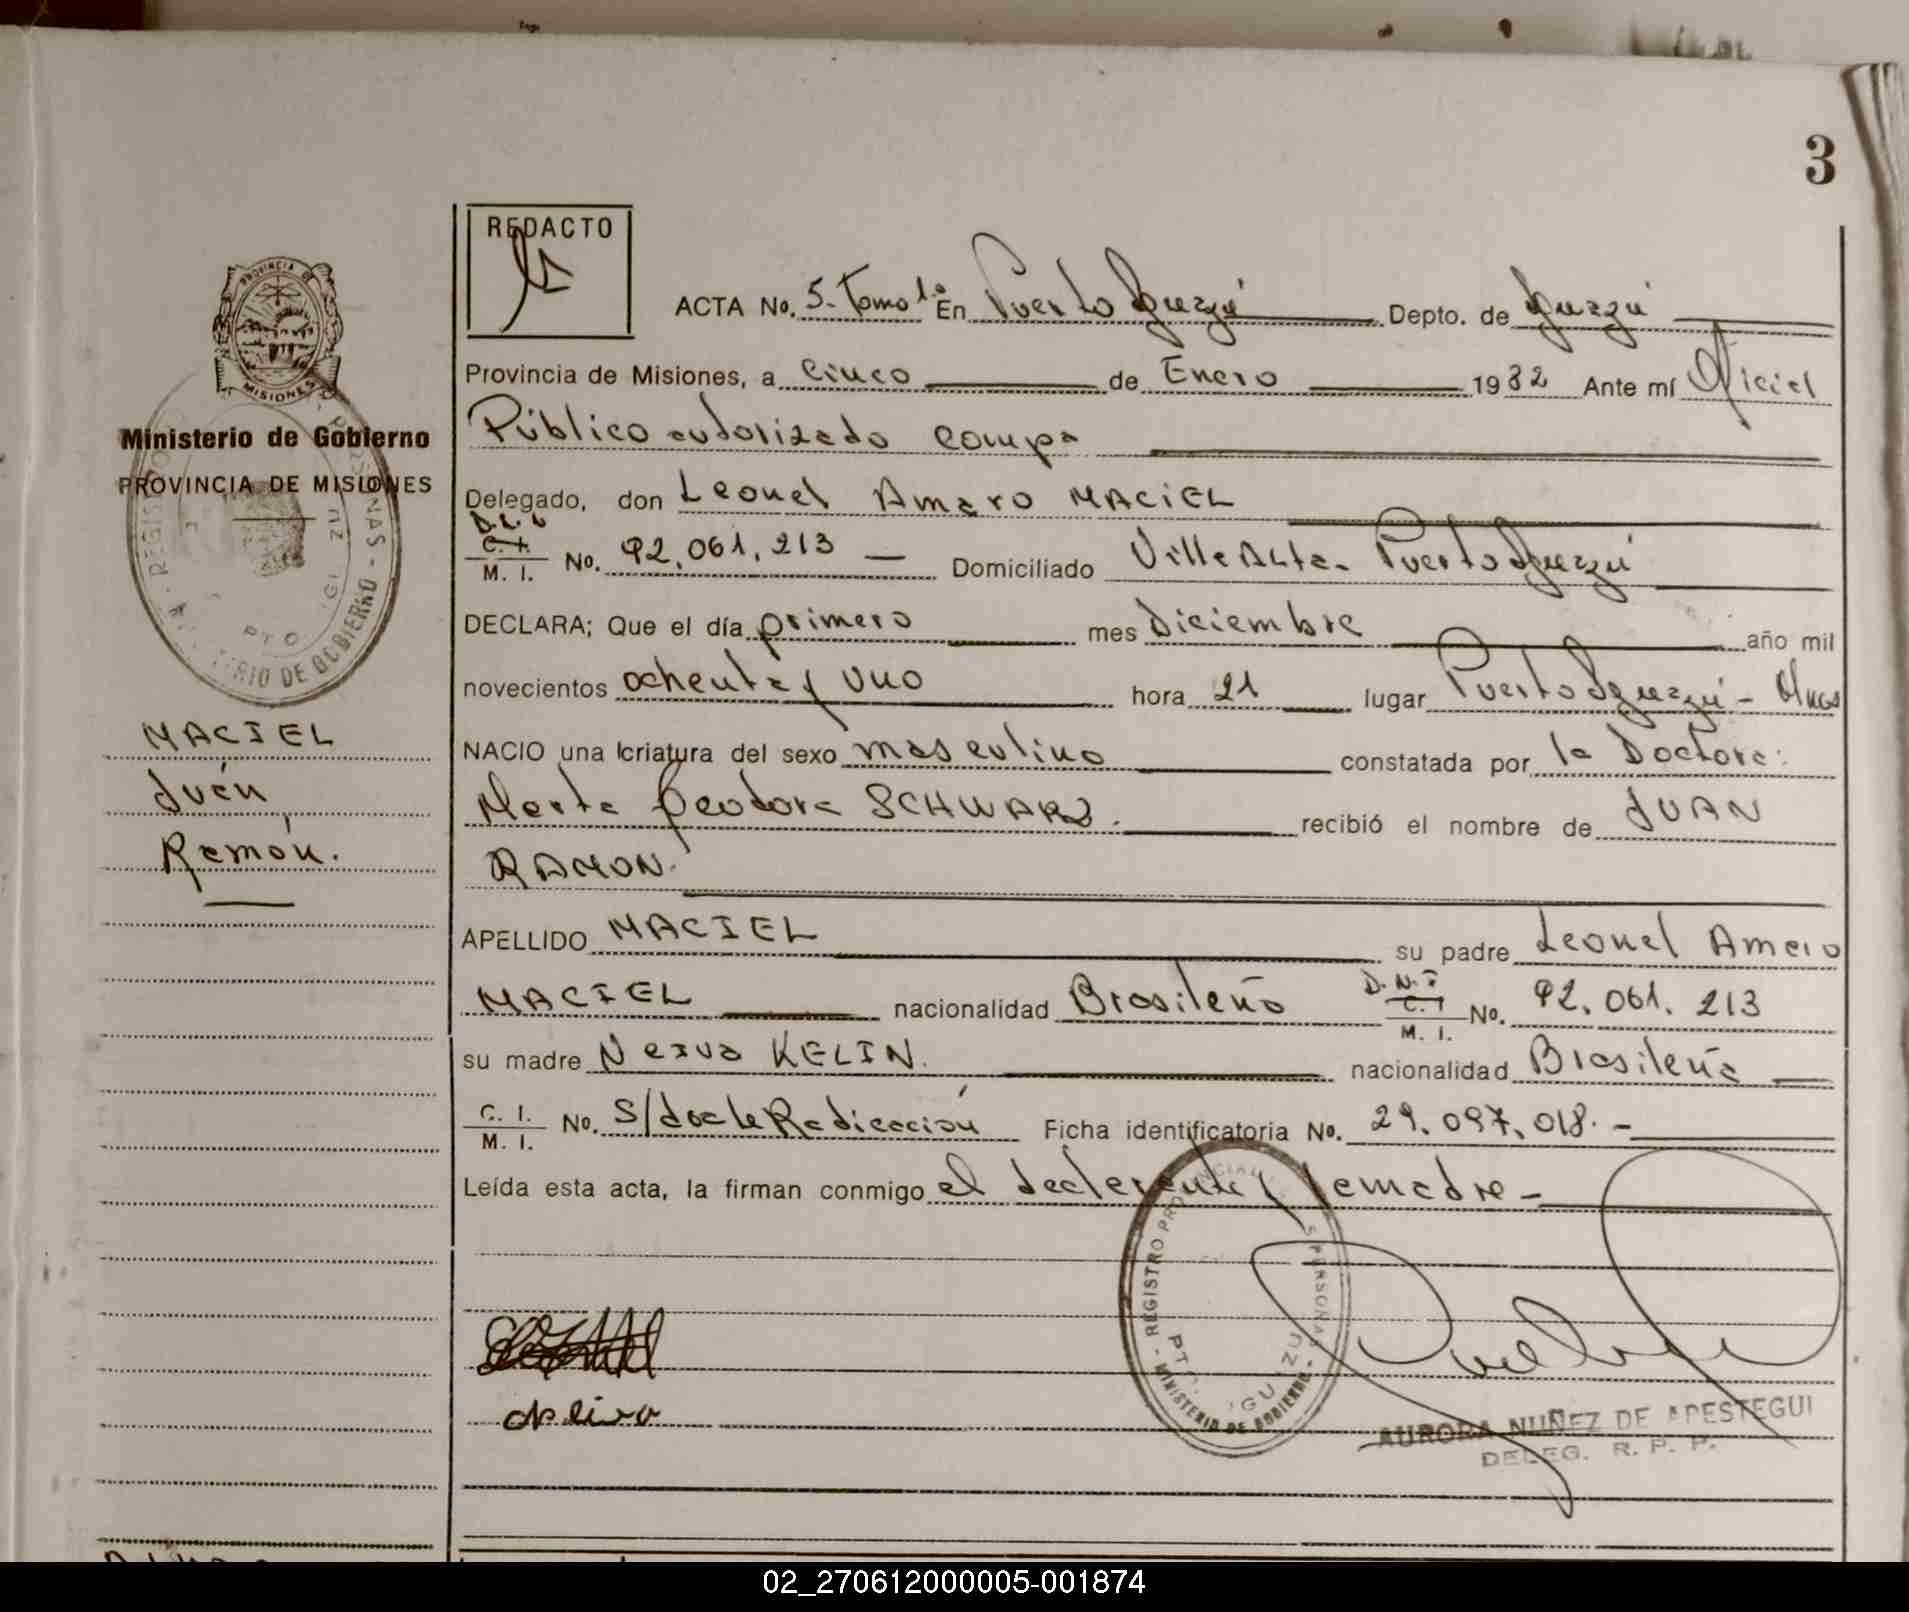 3
REDACTO
ACTA No. 5- Tomo 1º En Puerto Iguazú Depto. de Iguazú
PROVINCIA DE MISIONES
Provincia de Misiones, a Cinco de Enero 1982 Ante mí Oficial
Ministerio de Gobierno
Público autorizado comp
PROVINCIA DE MISIONES
Delegado, don Leonel Amaro MACIEL
C. I.
M. I. No. 92.061.213 — Domiciliado Villa Alta - Puerto Iguazú
DECLARA; Que el día primero mes Diciembre año mil
novecientos ochenta y uno hora 21 lugar Puerto Iguazú -
MACIEL
NACIO una criatura del sexo masculino constatada por la Doctora:
Juán
Marta Teodora SCHWARZ. recibió el nombre de JUAN
Ramón.
RAMON.
APELLIDO MACIEL su padre Leonel Amaro
MACIEL nacionalidad Brasileño D.N.I
C. I
M. I. No. 92.061.213
su madre Neiva KELIN. nacionalidad Brasileña
C. I.
M. I. No. S/doc de Radicación Ficha identificatoria No. 29.097.018.-
Leída esta acta, la firman conmigo el declarante y la madre-
REGISTRO PROVINCIAL PERSONAS - MINISTERIO DE GOBIERNO
PTO. IGUAZU
AURORA NUÑEZ DE APESTEGUI
DELEG. R. P. P.
02_270612000005-001874